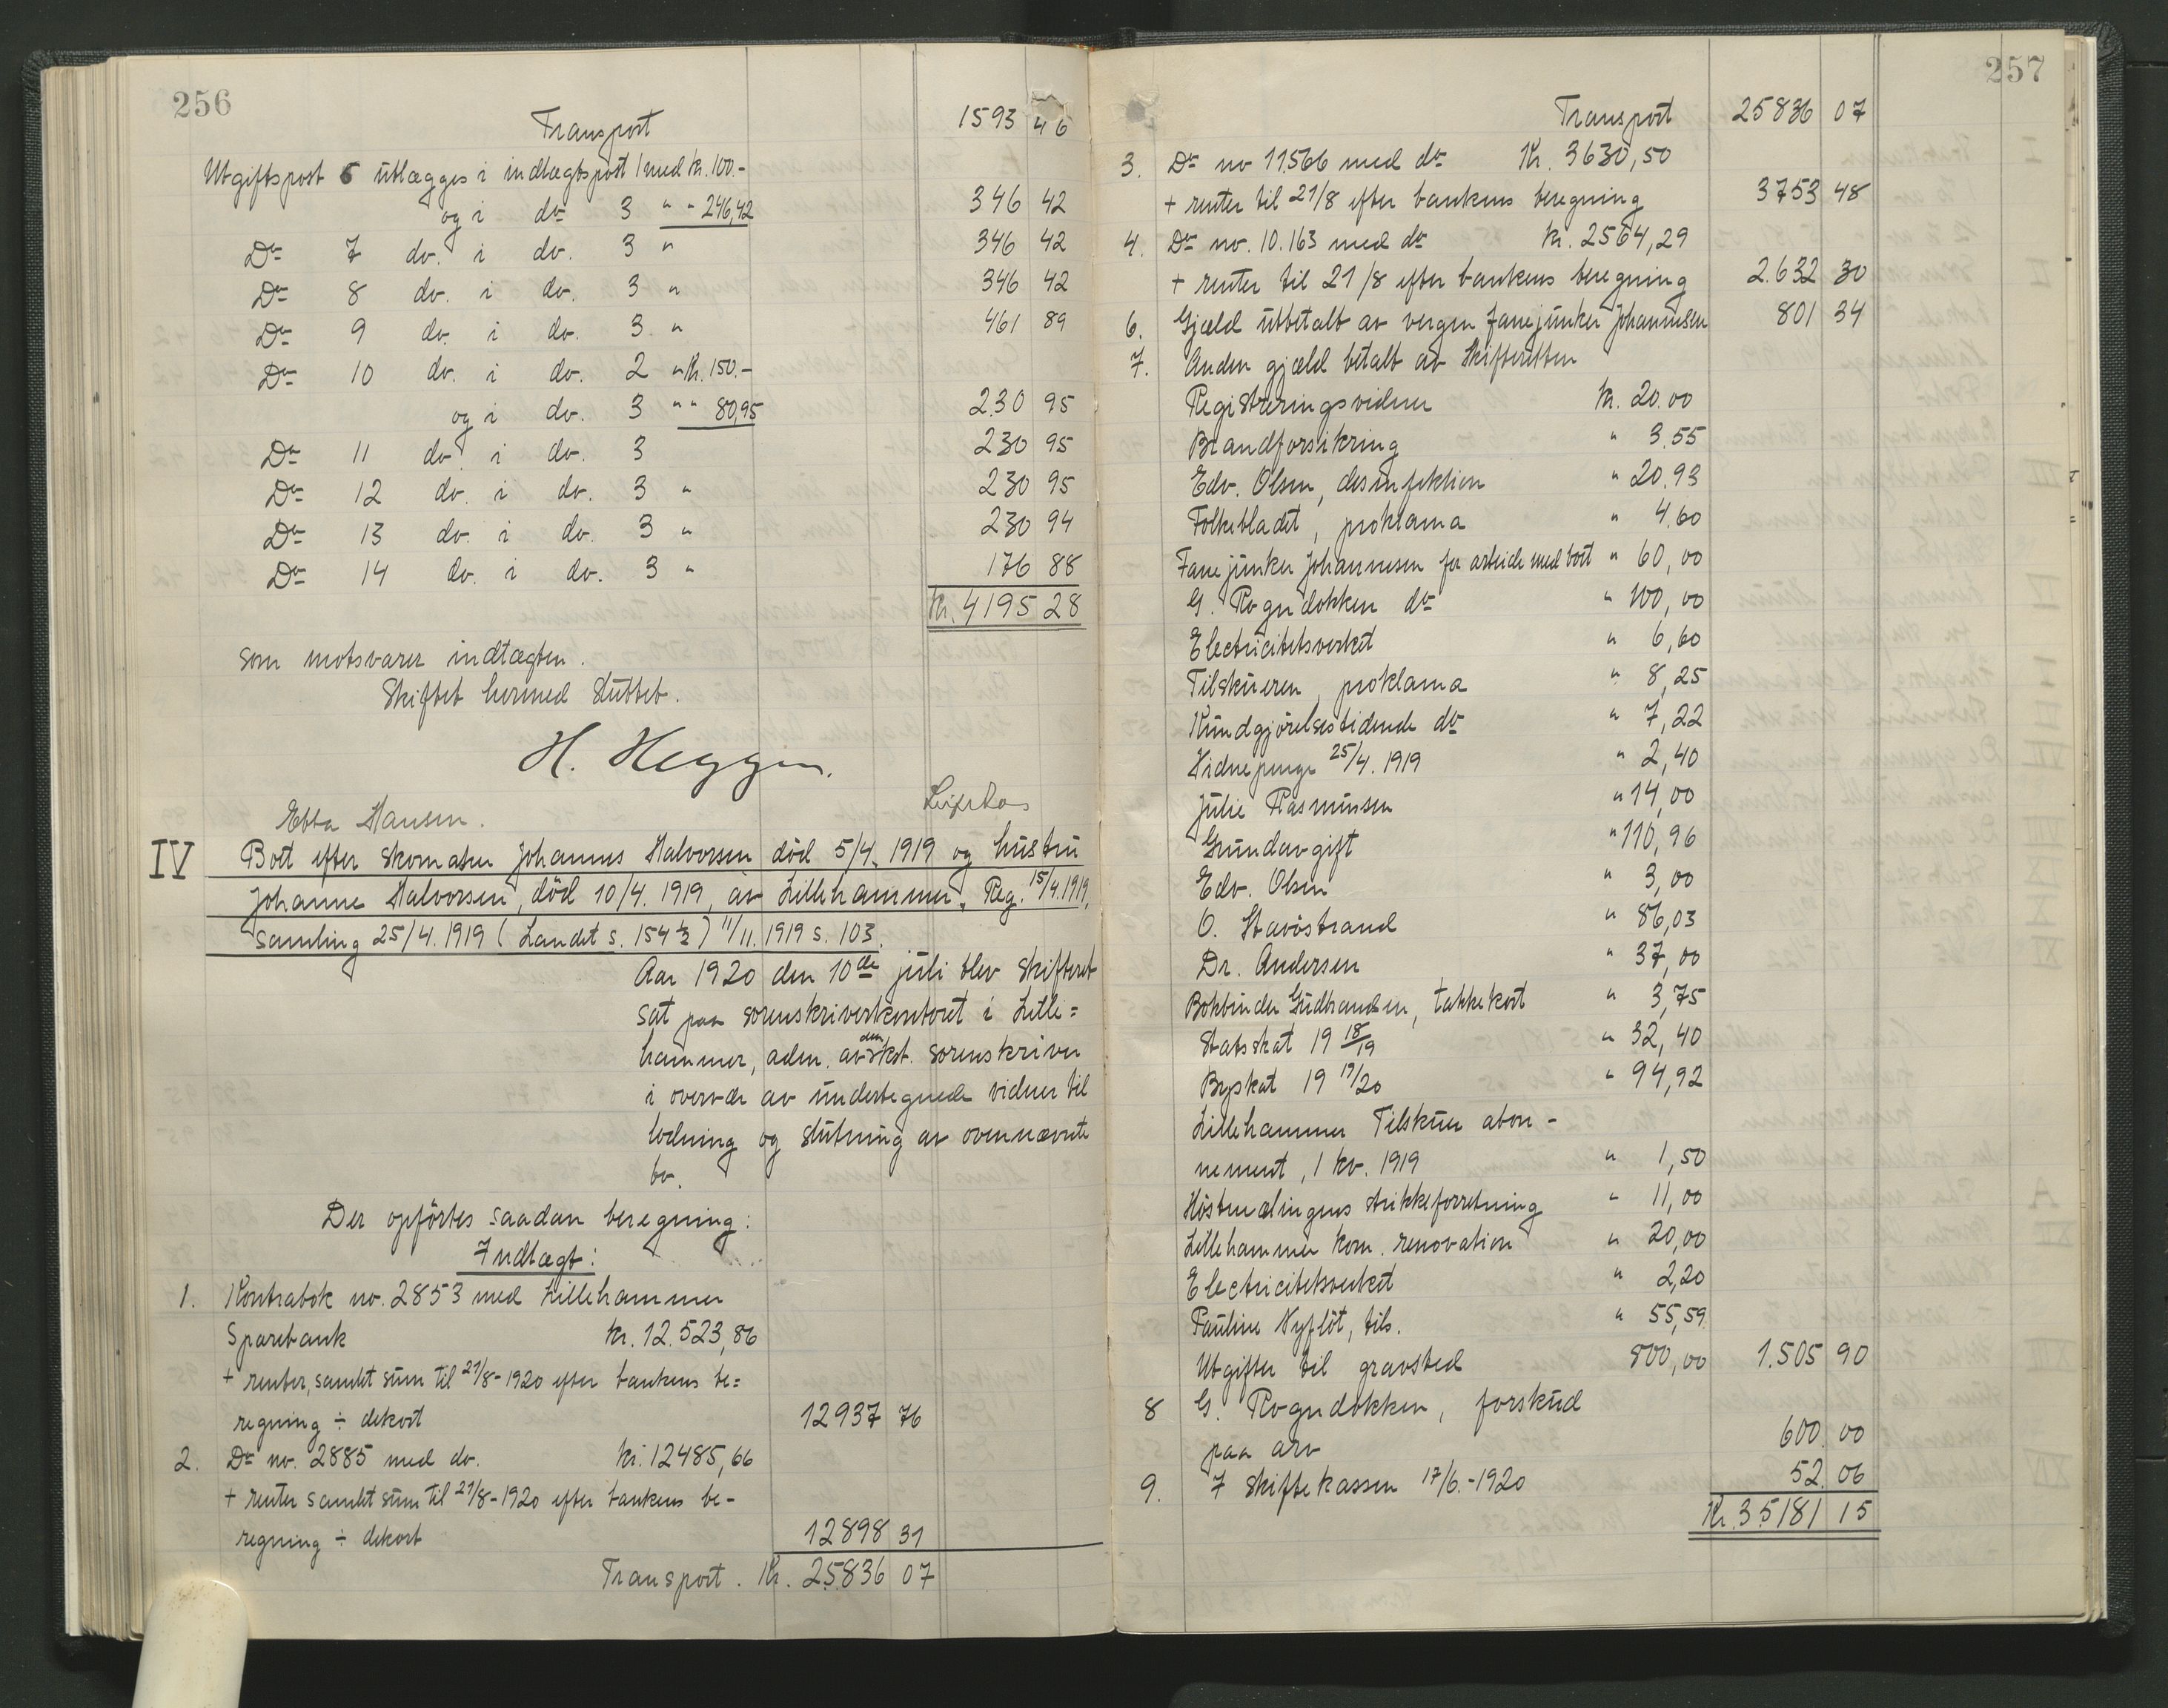 256
Transport 1593 46
Utgiftspost 6 utlægges i indtægtspost 1 med kr. 100.-
og i do 3 " " 246,42 346 42
Do 7 do. i do. 3 " 346 42
Do 8 do. i do. 3 " 346 42
Do 9 do. i do. 3 " 461 89
Do 10 do. i do. 2 " kr. 150.-
og i do. 3 " " 80,95 230 95
Do 11 do i do. 3 230 95
Do 12 do. i do. 3 " 230 95
Do 13 do. i do. 3 " 230 94
Do 14 do. i do. 3 " 176 88
Kr. 4195 28
som motsvarer indtægten.
Skiftet hermed sluttet.
H. Heggen.
Ebba Hansen.
IV Boet efter skomaker Johannes Halvorsen död 5/4. 1919 og hustru
Johanne Halvorsen, död 10/4. 1919, av Lillehammer. Reg. 15/4.1919,
Samling 25/4. 1919 (Landet s. 154 1/2) 11/11. 1919 s. 103.
Aar 1920 den 10de juli blev skifteret
sat paa sorenskriverkontoret i Lille=
hammer, adm. av den kst. sorenskriver
i overvær av undertegnede vidner til
lodning og slutning av ovennævnte
bo.
Der opförtes saadan beregning:
Indtægt:
1. Kontrabok no. 2853 med Lillehammer
Sparebank kr. 12.523,86
+ renter, samlet sum til 21/8-1920 efter bankens be=
regning ÷ dekort 12937 76
2. Do no. 2885 med do. kr. 12485,66
+ renter samlet sum til 21/8-1920 efter bankens be-
regning ÷ dekort 12898 31
Transport. Kr. 25836 07
257
Transport 25836 07
3. Do no 11566 med do Kr. 3630,50
+ renter til 21/8 efter bankens beregning 3753 48
4. Do no. 10.163 med do kr. 2564,29
+ renter til 21/8 efter bankens beregning 2.632 30
6. Gjæld utbetalt av vergen fanejunker Johannesen 801 34
7. Anden gjæld betalt av skifteretten
Registreringsvidner kr. 20.00
Brandforsikring " 3.55
Edv. Olsen, desinfektion " 20.93
Folkebladet, proklama " 4.60
Fanejunker Johannesen for arbeide med boet " 60,00
G. Rogndokken do " 100,00
Electricitetsverket " 6,60
Tilskueren, proklama " 8,25
Kundgjörelsestidende do " 7,22
Vidnepenge 25/4. 1919 " 2,40
Julie Rasmussen " 14,00
Grundavgift " 110,96
Edv. Olsen " 3,00
O. Stavöstrand " 86,03
Dr. Andersen " 37,00
Bokbinder Gudbrandsen, takkekort " 3,75
Statsskat 19 18/19 " 32,40
Byskat 19 19/20 " 94,92
Lillehammer Tilskuer abon-
nement, 1 kv. 1919 " 1,50
Höstmælingens strikkeforretning " 11,00
Lillehammer kom. renovation " 20,00
Electricitetsverket " 2,20
Pauline Nyflöt, tils. " 55,59
Utgifter til gravsted 800,00 1.505 90
8 G. Rogndokken, forskud
paa arv 600 00
9. I skiftekassen 17/6.-1920 52 06
Kr. 35181 15